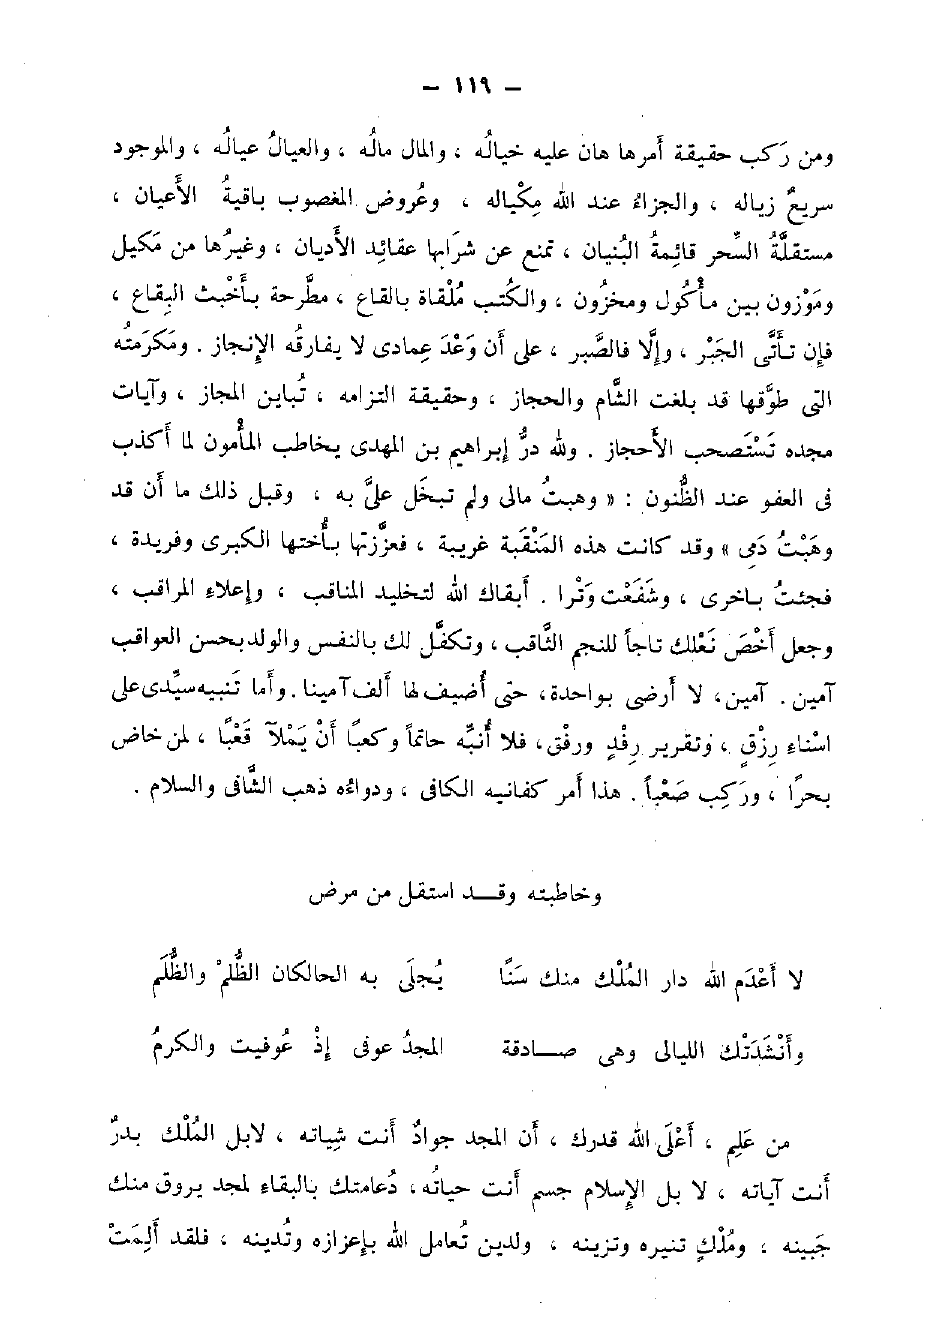 — ١١٩ —
ومن رَكب حقيقة أمرها هان عليه خيالُه ، والمال مالُه ، والعيالُ عيالُه ، والموجود
سريعٌ زياله ، والجزاءُ عند الله مِكْياله ، وعُروض المغصوب باقيةُ الأَعيان ،
مستقلَّةُ السِّحر قائمةُ البُنيان ، تمنع عن شرَابها عقائد الأَديان ، وغيرُها من مَكيل
ومَوْزون بين مأْكول ومخزُون ، والكُتب مُلْقاة بالقاع ، مطَّرحة بأَخْبث البِقاع ،
فإن تأَتَّى الجَبْر ، وإلَّا فالصَّبر ، على أن وَعْدَ عِمادى لا يفارقُه الإِنجاز . ومَكرَمتُه
التى طوَّقها قد بلغت الشَّام والحجاز ، وحقيقة التزامه ، تُباين المجاز ، وآيات
مجده تَسْتَصحب الأَحجاز . ولله درُّ إبراهيم بن المهدى يخاطب المأْمون لما أكذب
فى العفو عند الظُّنون : « وهبتُ مالى ولم تبخَل علىَّ به ، وقبل ذلك ما أن قد
وهَبْتُ دَمِى » وقد كانت هذه المَنْقَبة غريبة ، فعزَّزتها بأُختها الكبرى وفريدة ،
فجئتُ بأخرى ، وشَفَعْت وَتْرا . أبقاك الله لتخليد المناقب ، وإعلاءِ المراقب ،
وجعل أَخْمَص نَعْلك تاجاً للنجم الثَّاقب ، وتكفَّل لك بالنفس والولد بحسن العواقب
آمين . آمين ، لا أرضى بواحدة ، حتَّى أُضيف لها ألف آمينا . وأما تَنبيه سيِّدى على
اسْناءِ رِزْقٍ ، وتقرير رِفْدٍ ورفق ، فلا أُنبِّه حاتماً وكعبًا أَنْ يَملَأَ قَعْبًا ، لمن خاض
بحرًا ، ورَكِب صَعْباً . هذا أمر كفانيه الكافى ، ودواءُه ذهب الشَّافى والسلام .
وخاطبته وقد استقل من مرض
لا أَعْدَم الله دار المُلْك منك سَنًا يُجلَى به الحالكان الظُّلْمُ والظُّلَم
وأَنْشَدَتْك الليالى وهى صادقة المجدُ عوفى إذْ عُوفيت والكرمُ
من عَلِم ، أَعْلَى الله قدرك ، أَن المجد جوادٌ أَنت شِياته ، لابل المُلْك بدرٌ
أنت آياته ، لا بل الإسلام جسم أنت حياتُه ، دُعامتك بالبقاء لمجد يروق منك
جَبينه ، ومُلْكٍ تنيره وتزينه ، ولدين تُعامل الله بإعزازه وتُدينه ، فلقد أَلِمَتْ